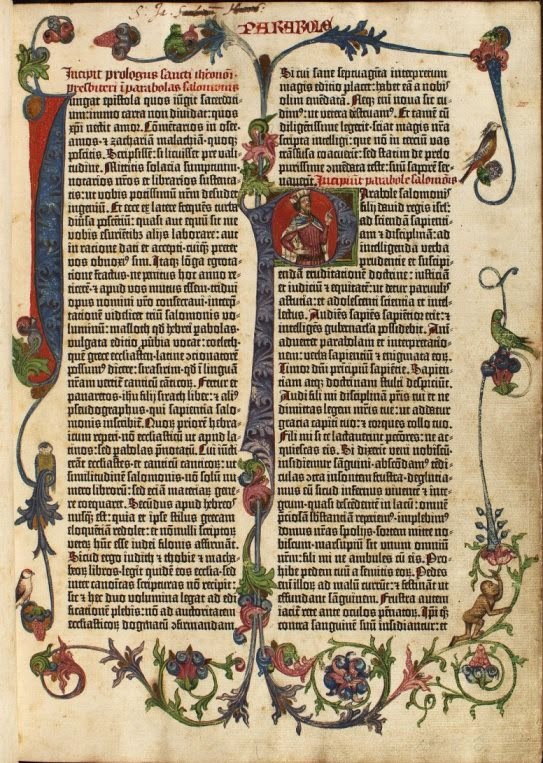 PARABOLE
Incipit prologus sancti iheronimi
presbiteri i parabolas salomonis
Iungat epistola quos iũgit sacerdoti-
um:immo carta non diuidat: quos
xpi nectit amor. Cõmẽtarios in osee.
amos. ⁊ zachariã malachiã. quoqȝ
poscitis. Scripsissẽ: si licuisset pre uali-
tudine. Mittitis solacia sumptuum.
notarios nr̃os et librarios sustenta-
tis: ut uobis potissimũ nr̃m desudet
ingeniũ. Et ecce ex latere frequẽs turba
diũsa poscentiũ: quasi aut equũ sit me
uobis esurientibꝫ alijs laborare: aut
in ratione dati et accepti. cuiqȝ preter
vos obnoxiꝰ sim. Itaqȝ lõga egrota-
tione fractus. ne penitus hoc anno re-
ticerẽ. ⁊ apud vos mutus essem. tridui
opus nomini vr̃o consecraui. interp̃-
tationẽ videlicet triũ salomonis vo-
luminũ: masloth qđ hebrei pabolas.
vulgata editio ꝓuibia vocat: coeleth.
quẽ grece ecclesiasten. latine ɔcionatorẽ
possumꝰ dicere: sirasirim. qđ ĩ linguã
nr̃am vertiť cãticũ cãticoꝝ. Fertur et
panaretos. ihu filij sirach liber: ⁊ aliꝰ
pseudographus. qui sapientia salo-
monis inscribiť. Quoꝝ priorẽ hebra-
icum reperi. nõ ecclesiasticũ ut apud la-
tinos: sed pabolas p̃notatũ. Cui iũcti
erãt ecclesiastes. et canticũ canticoꝝ: ut
similitudinẽ salomonis. nõ solũ nu-
mero librorũ: sed eciã materiaꝝ gene-
re coequaret. Secũdus apud hebreos
nusqȝ est: quia et ipse stilus grecam
eloquẽtiã redolet: et nõnulli scriptoꝝ
veteꝝ hũc esse iudei filonis affirmãt.
Sicut ergo iudith ⁊ thobie ⁊ macha-
beoꝝ libros. legit quidẽ eos ecclĩa. sed
inter canõicas scripturas nõ recipit:
sic ⁊ hec duo volumina legat ad edi-
ficationẽ plebis: nõ ad auctoritatem
ecclesiasticoꝝ dogmatũ ɔfirmandam.
Si cui sane septuaginta interpretum
magis editio placet: habet eã a nobis
olim emẽdatã. Neqȝ enĩ noua sic cu-
dimꝰ: ut vetera destruamꝰ. Et tamẽ cũ
diligẽtissime legerit. sciat magis nr̃a
scripta intelligi: que nõ in terciũ vas
trãsfusa coacuerĩt: sed statim de prelo
purissime ɔmẽdata teste: suũ saporẽ ser-
uauerĩt. Incipiunt parabole salomõis
Parabole salomonis
filij dauid regis isrł:
ad sciendã sapienti-
am ⁊ disciplinã: ad
intelligenda verba
prudentie et suscipi-
endã eruditationẽ doctrine: iusticiã
et iudiciũ ⁊ equitatẽ: ut detur paruulis
astutia: et adolescenti scientia et intel-
lectus. Audiẽs sapiẽs sapiẽtior erit: ⁊
intelligẽs gubernacla possidebit. Ani-
aduertet parabolam et interpretatio-
nem: verba sapientiũ ⁊ enigmata eoꝝ.
Timor dñi prĩcipiũ sapiẽtie. Sapien-
tiam atqȝ doctrinam stulti despiciũt.
Audi fili mi disciplinã pr̃is tui et ne
dimittas legem mr̃is tue: ut addatur
gratia capiti tuo: ⁊ torques collo tuo.
Fili mi si te lactauerint pcc̃ores: ne ac-
quiescas eis. Si dixerĩt veni nobiscũ.
insidiemur sãguini. abscõdamꝰ tedi-
culas ɔtra insontem frustra. deglutia-
mus eũ sicud infernus viuentẽ ⁊ inte-
grum. quasi descẽdentẽ in lacũ: omnẽ
p̃ciosã s̃bstantiã reperiemꝰ. implebimꝰ
domus nr̃as spolijs. sortem mitte no-
biscum. marsupiũ sit unum omniũ
nr̃m: fili mi ne ambules cũ eis. Pro-
hibe pedem tuũ a semitis eoꝝ. Pedes
enĩ illoꝝ ad malũ currũt: ⁊ festinãt ut
effundant sãguinem. Frustra autem
iaciť rete ante oculos pẽnatoꝝ. Ipi qȝ
contra sanguinẽ suũ insidianťur: et